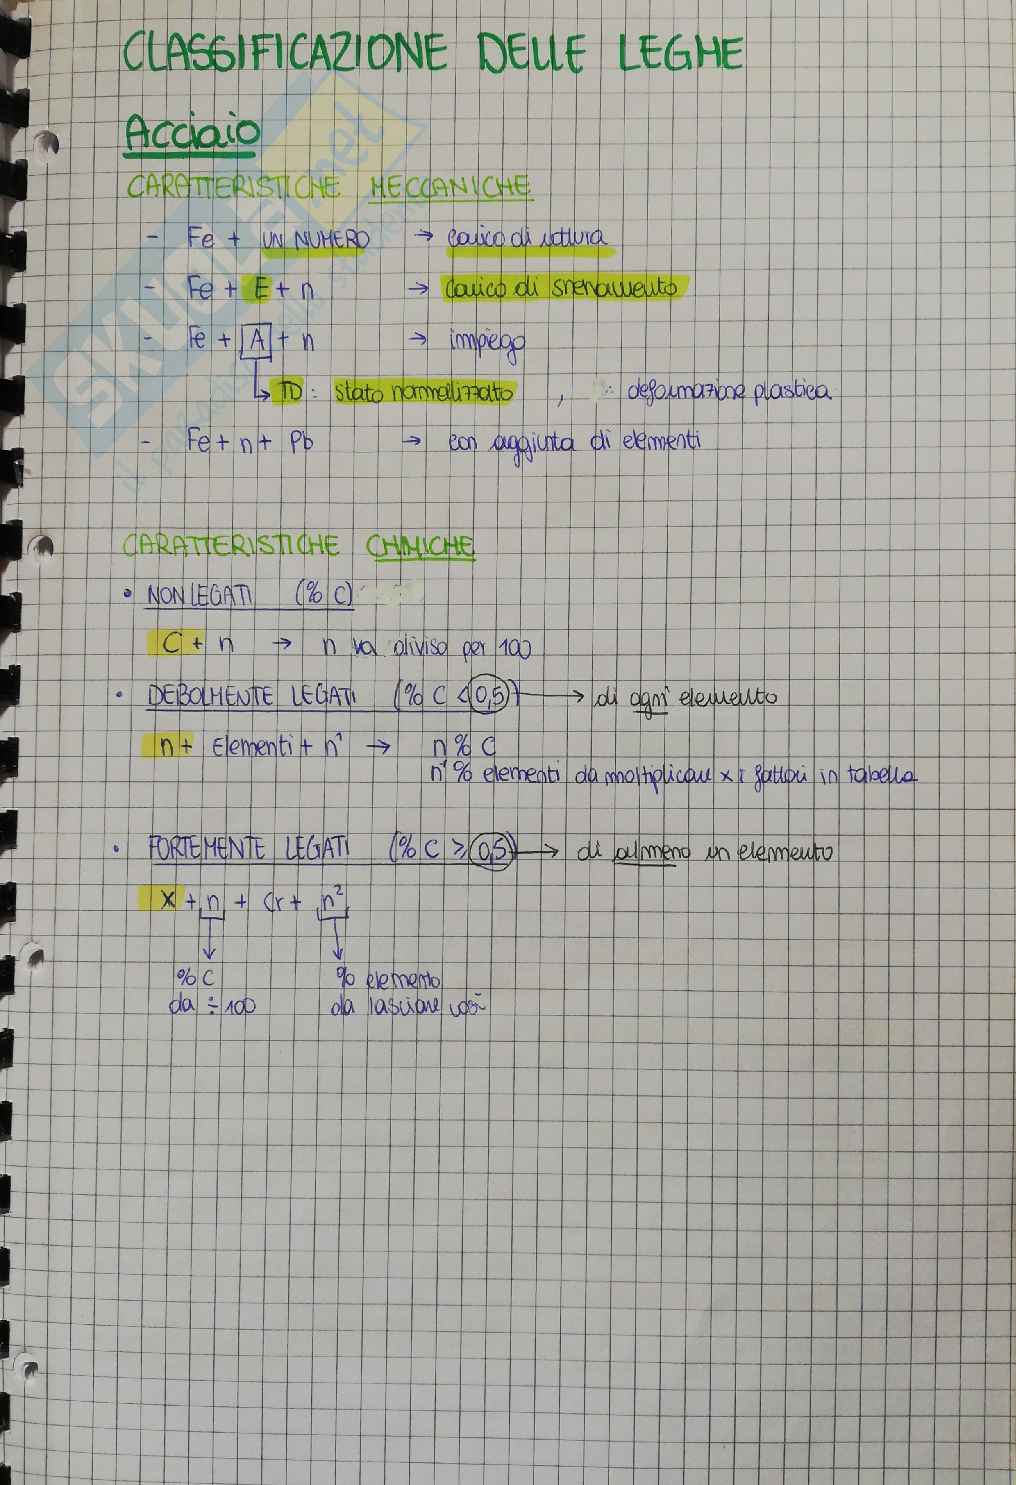 CLASSIFICAZIONE DELLE LEGHE
Acciaio
CARATTERISTICHE MECCANICHE
- Fe + UN NUMERO → carico di rottura
- Fe + E + n → carico di snervamento
- Fe + A + n → impiego
↳ TD: stato normalizzato , : deformazione plastica
- Fe + n + Pb → con aggiunta di elementi
CARATTERISTICHE CHIMICHE
• NON LEGATI (% C)
C + n → n va diviso per 100
• DEBOLMENTE LEGATI (% C < 0,5) → di ogni elemento
n + Elementi + n¹ → n % C
n¹ % elementi da moltiplicare x i fattori in tabella
• FORTEMENTE LEGATI (% C ≥ 0,5) → di almeno un elemento
X + n + Cr + n²
% C % elemento
da ÷ 100 da lasciare così
SKUOLA.net